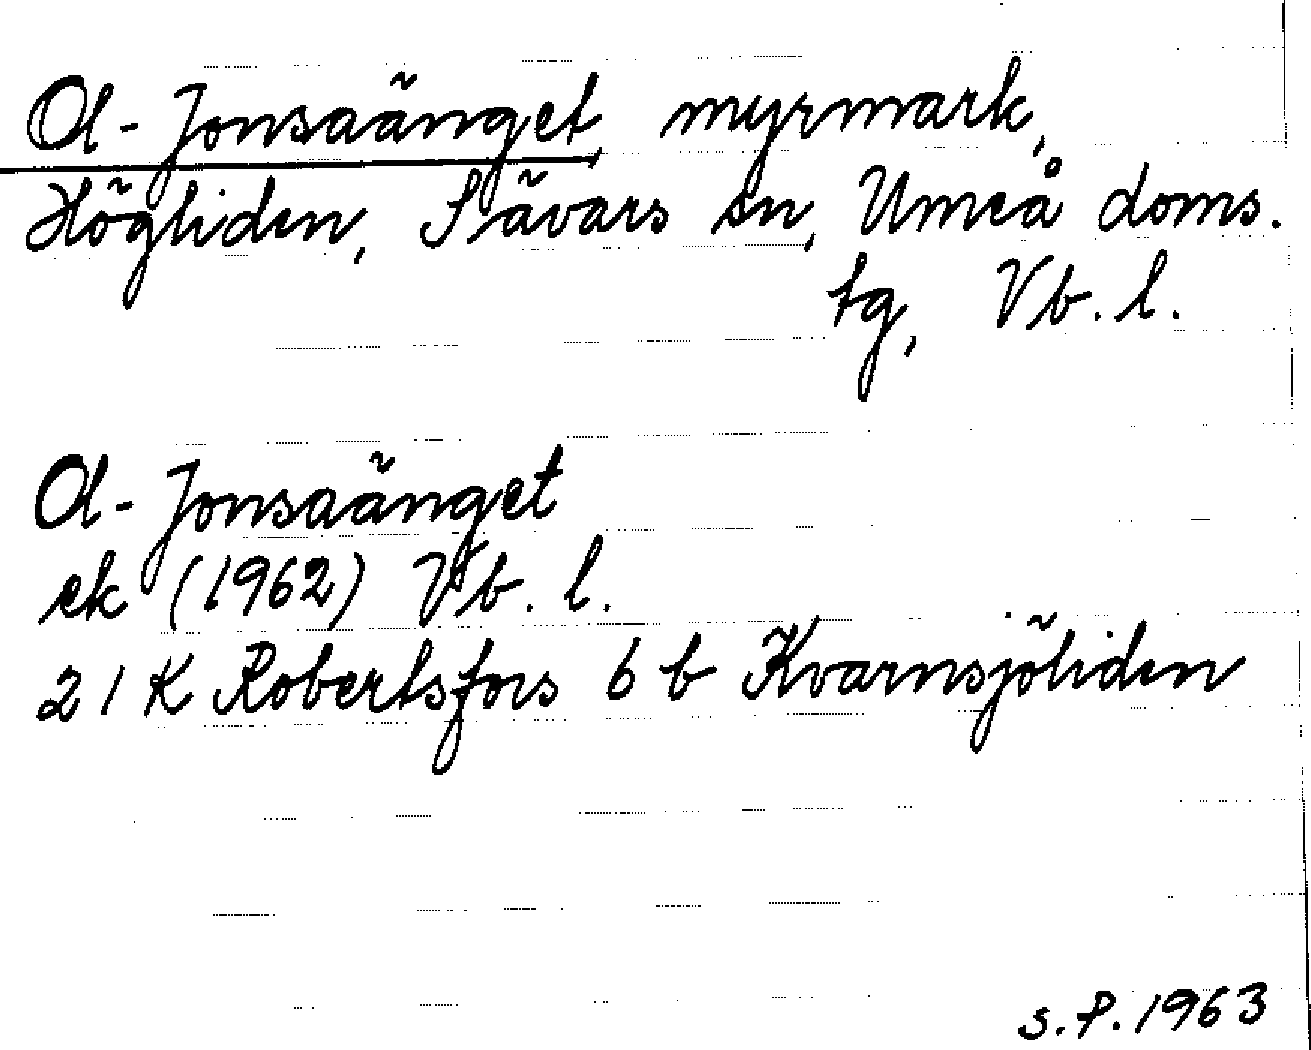 Ol-Jonsaänget, myrmark,
Högliden, Sävars sn, Umeå doms.
tg, Vb. l.
Ol-Jonsaänget
ek (1962) Vb. l.
21 K Robertsfors 6 b Kvarnsjöliden
S. P. 1963